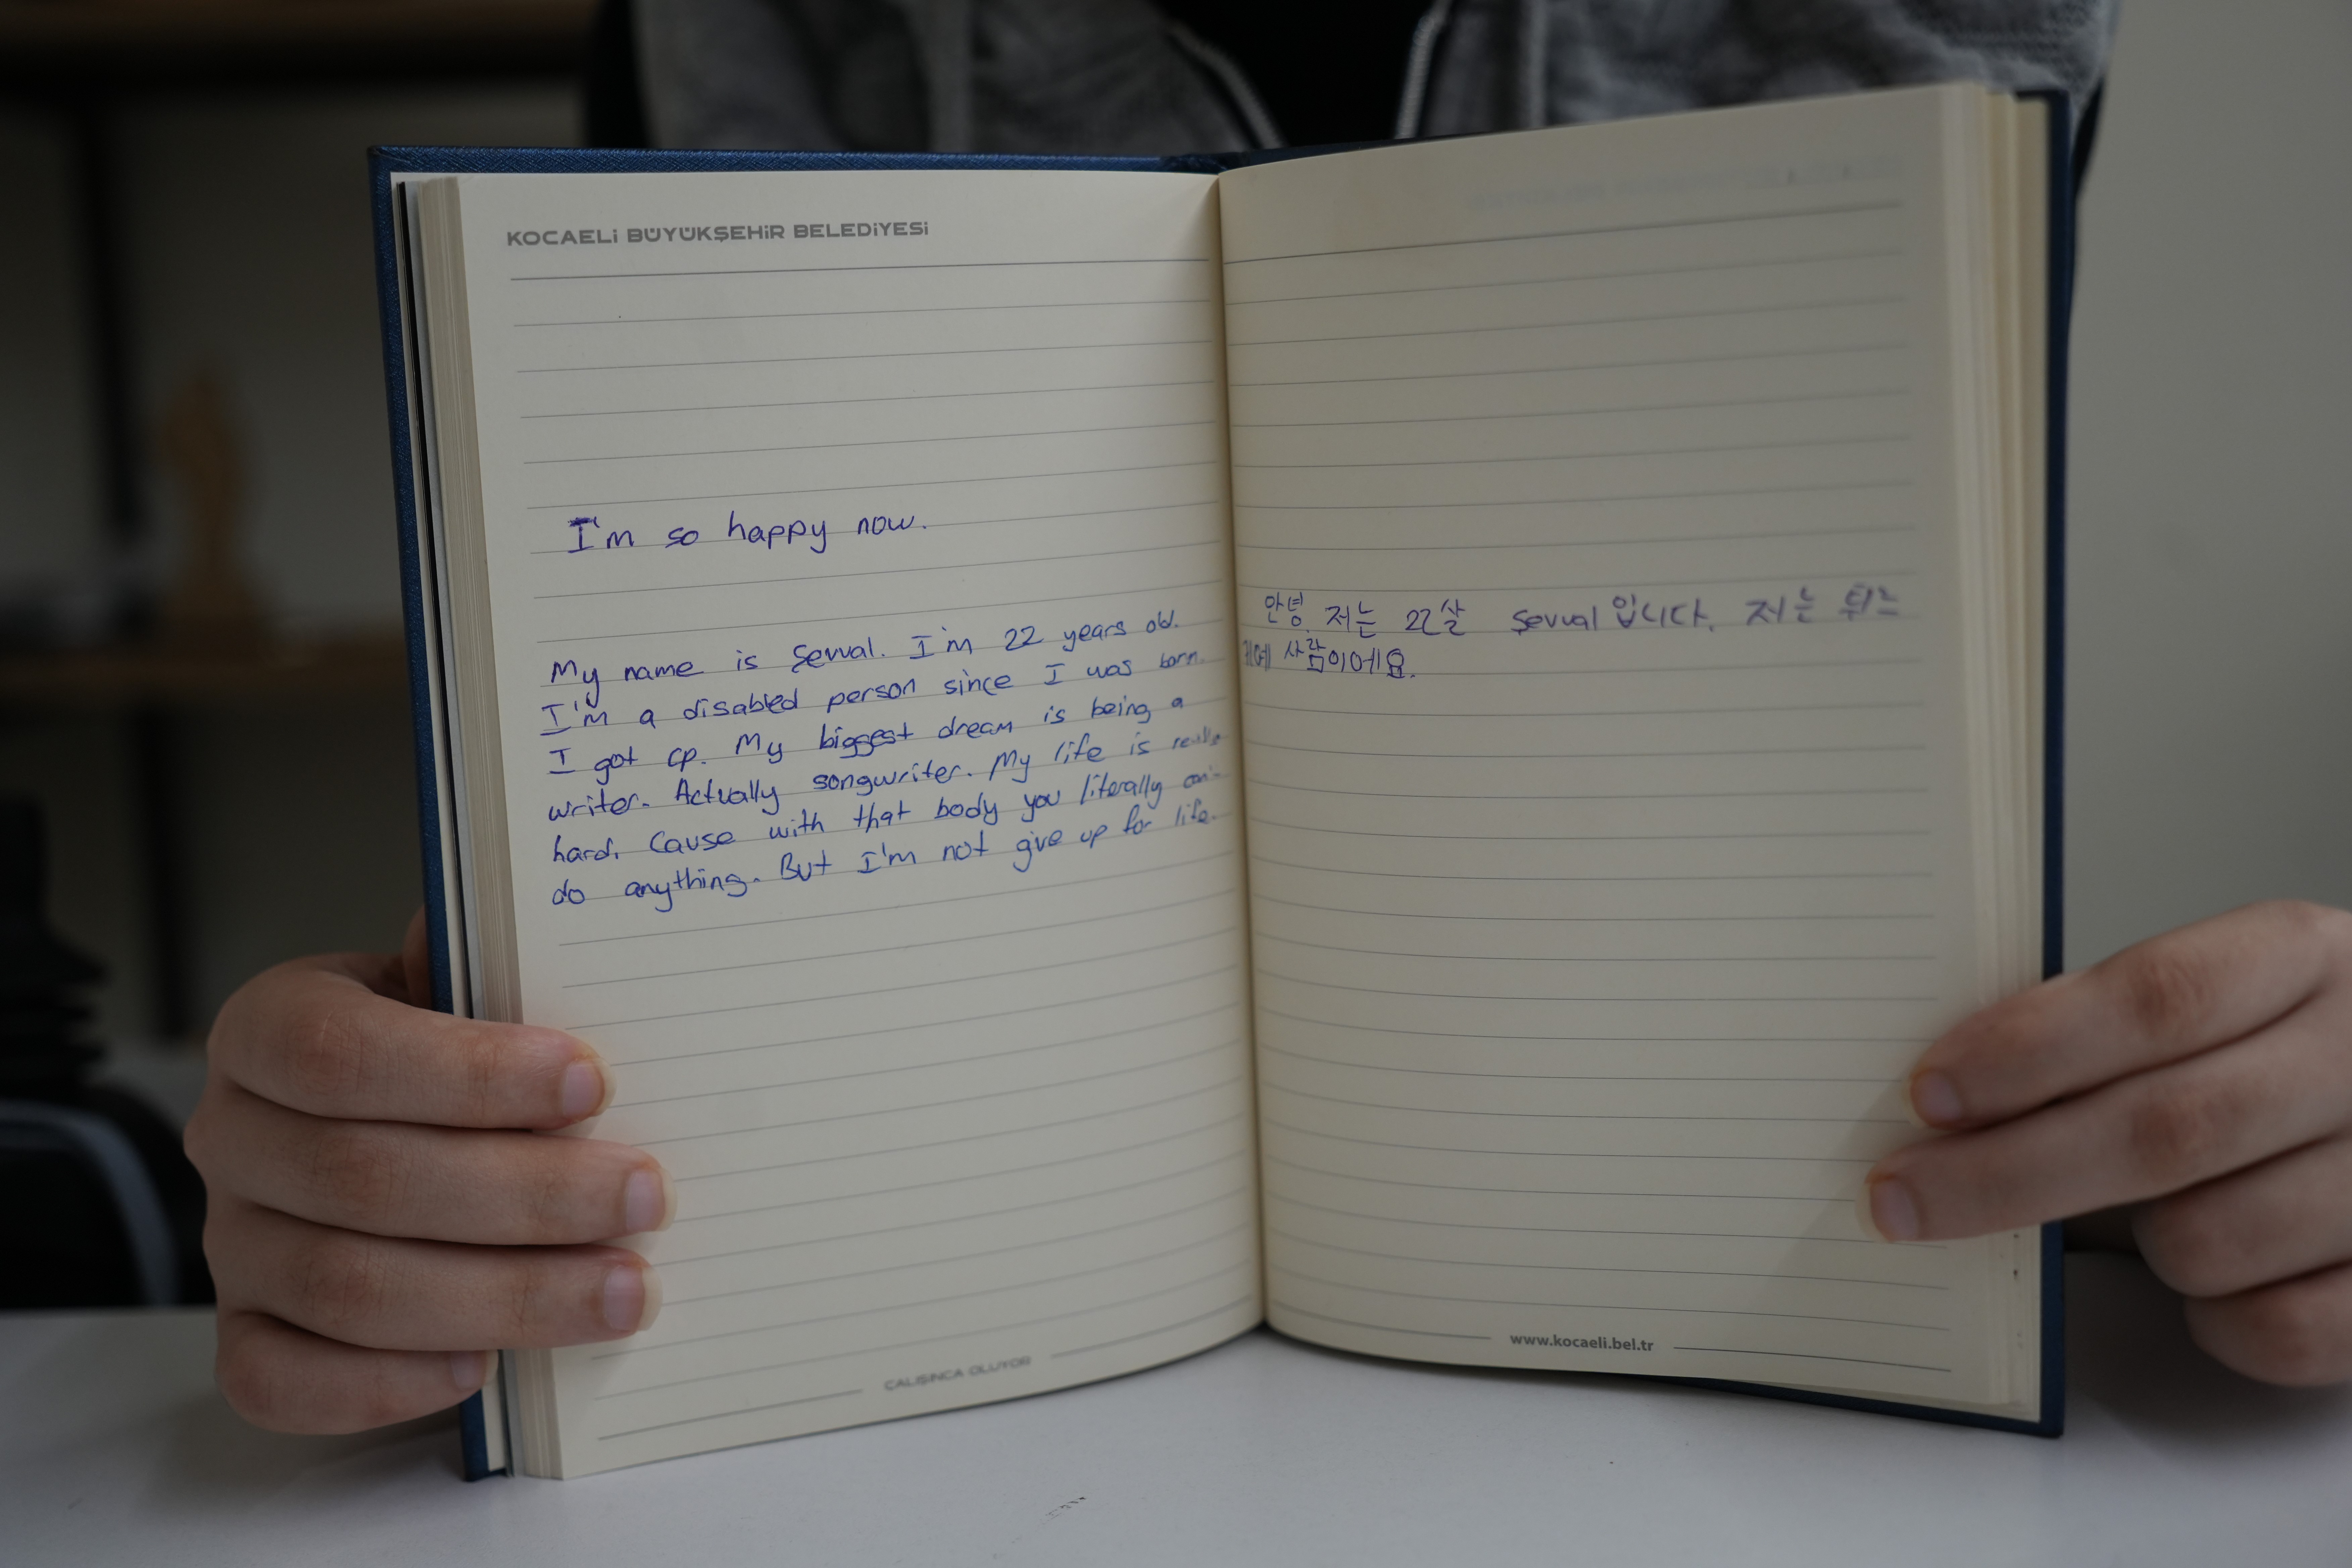 KOCAELİ BÜYÜKŞEHİR BELEDİYESİ
I'm so happy now.
My name is Şevval. I'm 22 years old.
I'm a disabled person since I was born.
I got cp. My biggest dream is being a
writer. Actually songwriter. My life is really
hard. Cause with that body you literally can't
do anything. But I'm not give up for life.
ÇALIŞINCA OLUYOR
안녕. 저는 22살 Şevval 입니다. 저는 튀르
사람이에요.
www.kocaeli.bel.tr